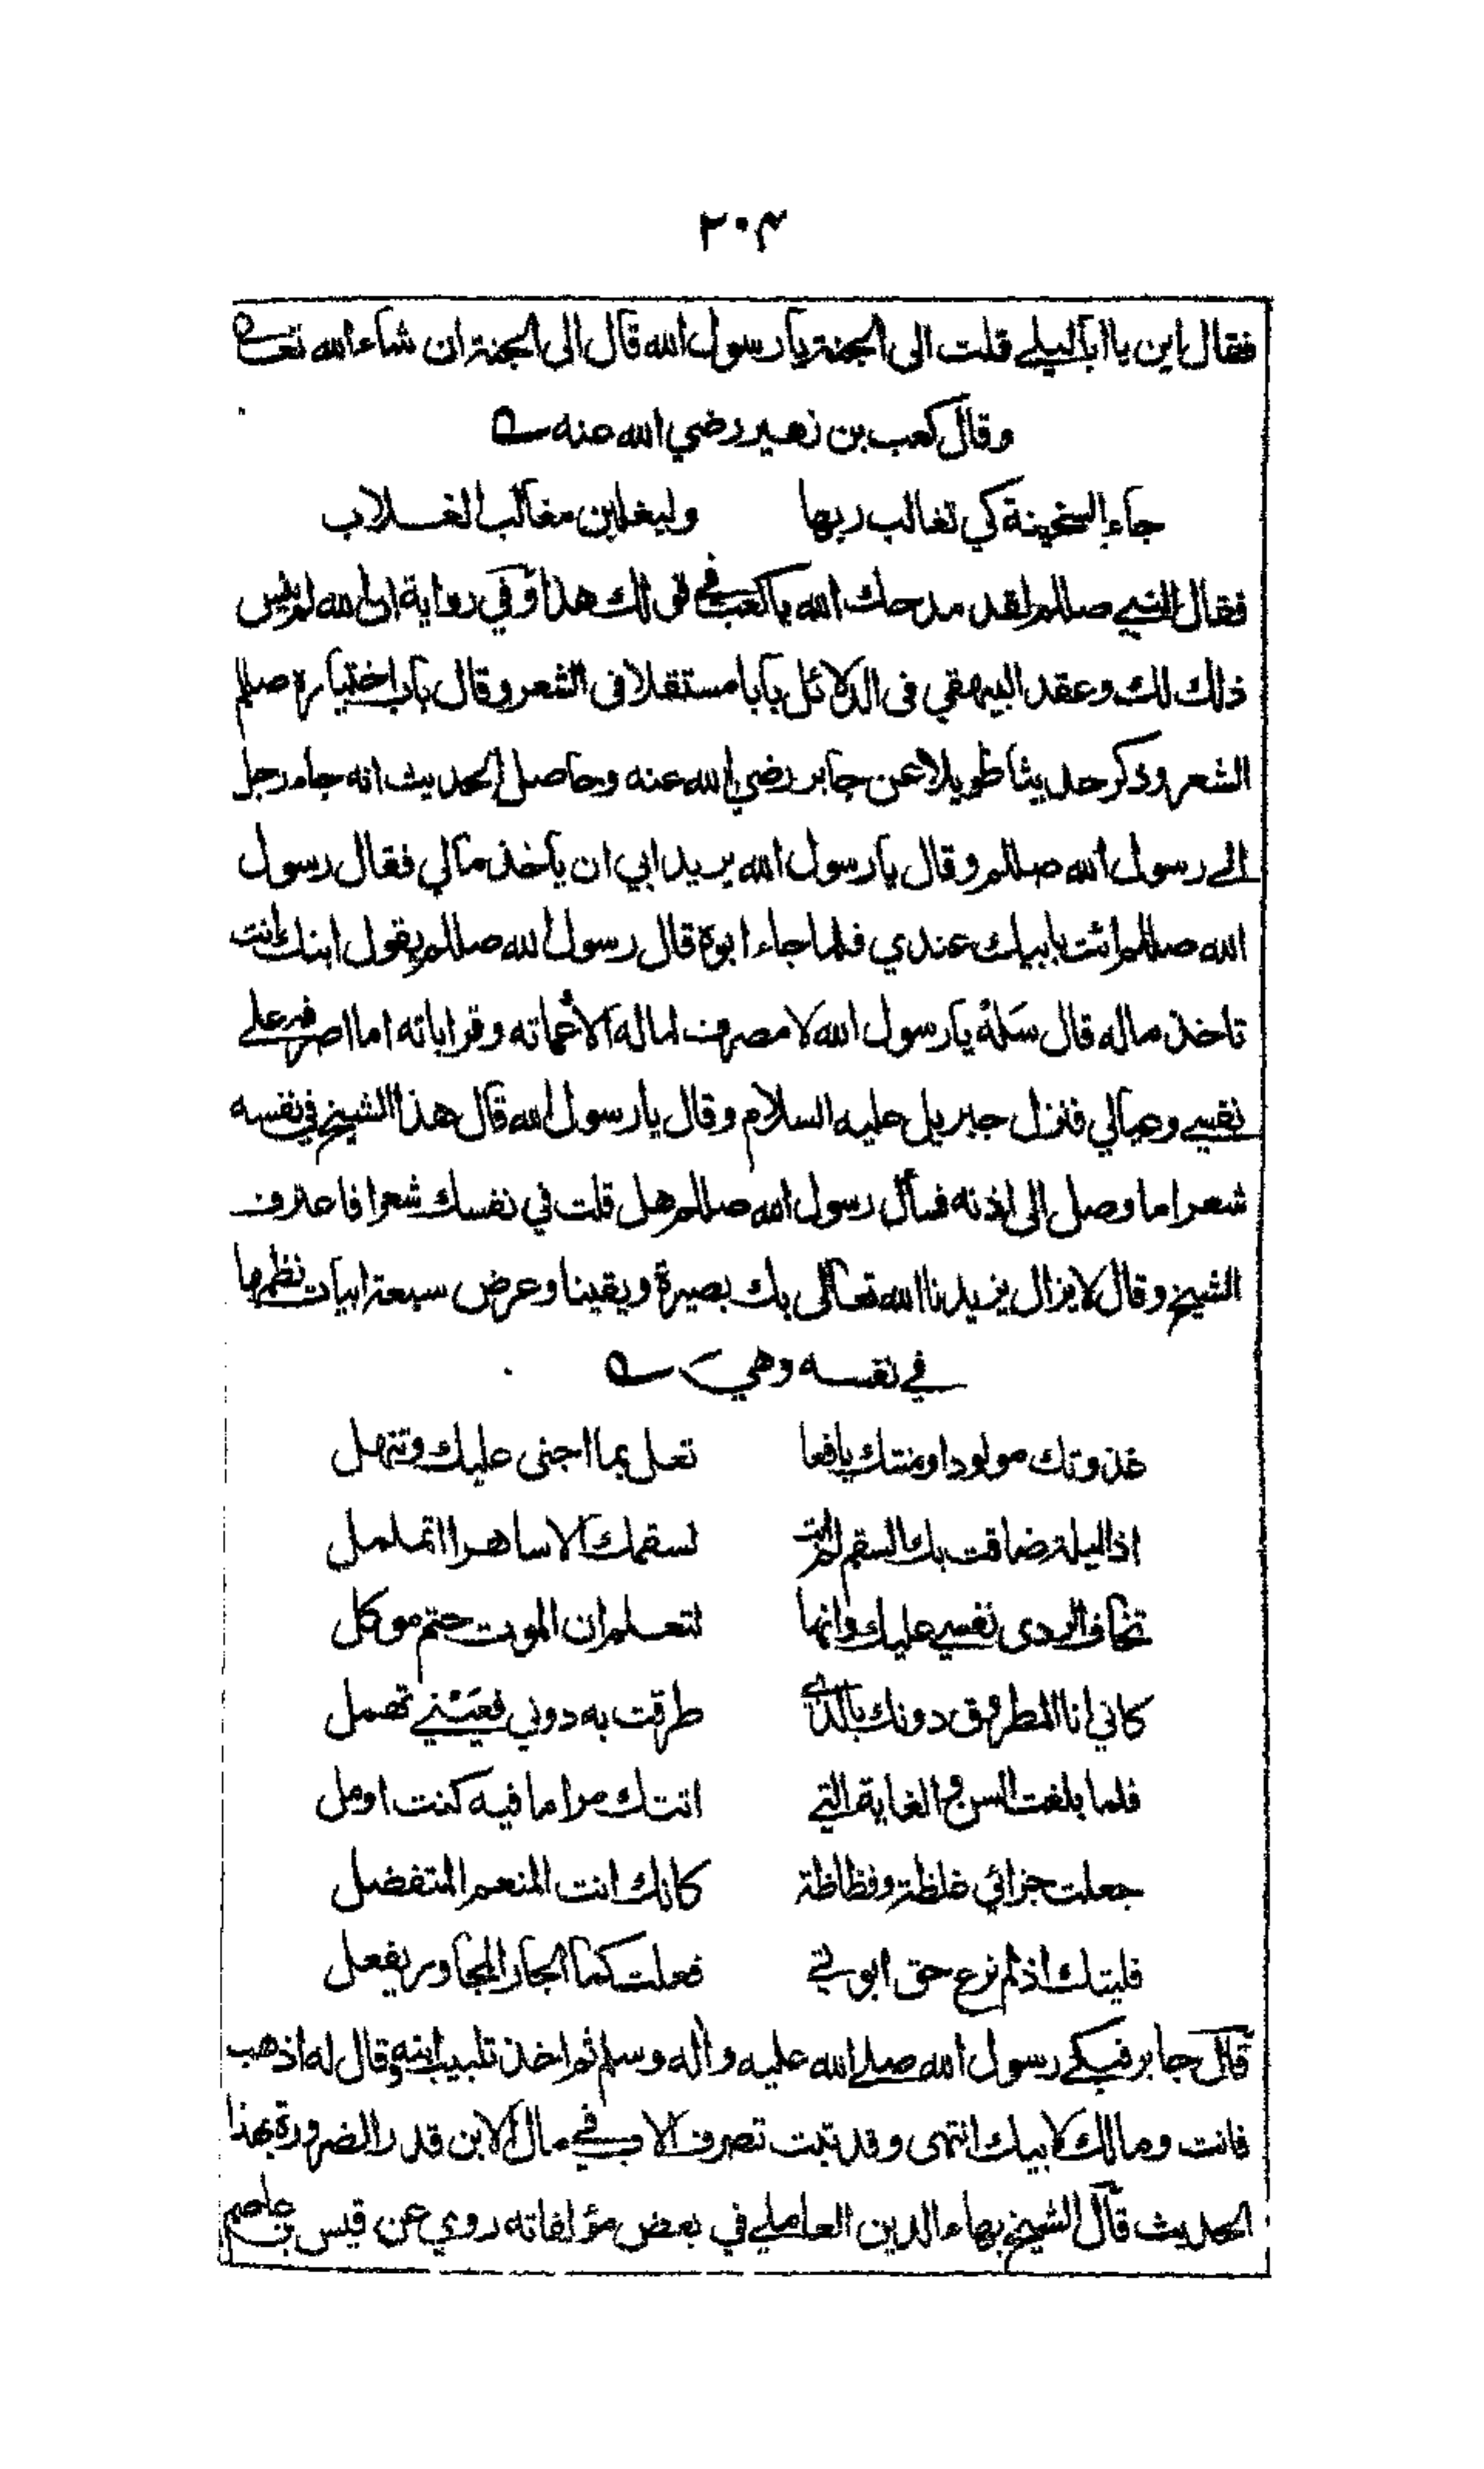 ٢٠٣
فقال اين يا ابا ليلى قلت الى الجنة يا رسول الله قال الى الجنة ان شاء الله تعالى
وقال كعب بن زهير رضي الله عنه
جاء السخينة كي تغالب ربها وليغلبن مغالب الغلاب
فقال النبي صللم لقد مدحك الله يا كعب في قولك هذا وفي رواية ان الله لم ينس
ذلك لك وعقد البيهقي فى الدلائل بابا مستقلا فى الشعر وقال باب اختياره صللم
الشعر وذكر حديثا طويلا عن جابر رضي الله عنه وحاصل الحديث انه جاء رجل
الى رسول الله صللم وقال يا رسول الله يريد ابي ان ياخذ مالي فقال رسول
الله صللم ائت بابيك عندي فلما جاء ابوه قال رسول الله صللم يقول ابنك انت
تاخذ ماله قال سله يا رسول الله لا مصرف لماله الا عماته وقراباته اما اصرفه على
نفسي وعيالي فنزل جبريل عليه السلام وقال يا رسول الله قال هذا الشيخ في نفسه
شعرا ما وصل الى اذنه فسأل رسول الله صللم هل قلت في نفسك شعرا فاعترف
الشيخ وقال لا يزال يزيدنا الله تعالى بك بصيرة ويقينا وعرض سبعة ابيات نظمها
في نفسه وهي
غذوتك مولودا ومنتك يافعا تعل بما اجنى عليك وتنهل
اذا ليلة ضاقت بك السقم لم ابت لسقمك الا ساهرا اتململ
تخاف الردى نفسي عليك وانها لتعلم ان الموت حتم موكل
كاني انا المطروق دونك بالذي طرقت به دوني فعيني تهمل
فلما بلغت السن والغاية التي اتتك مراما فيه كنت اومل
جعلت جزائي غلظة وفظاظة كانك انت المنعم المتفضل
فليتك اذ لم ترع حق ابوتي فعلت كما الجار المجاور يفعل
قال جابر فبكى رسول الله صلى الله عليه وأله وسلم ثم اخذ تلبيب ابنه وقال له اذهب
فانت ومالك لابيك انتهى وقد ثبت تصرف الاب في مال الابن قدر الضرورة بهذا
الحديث قال الشيخ بهاء الدين العاملي في بعض مؤلفاته روي عن قيس بن عاصم